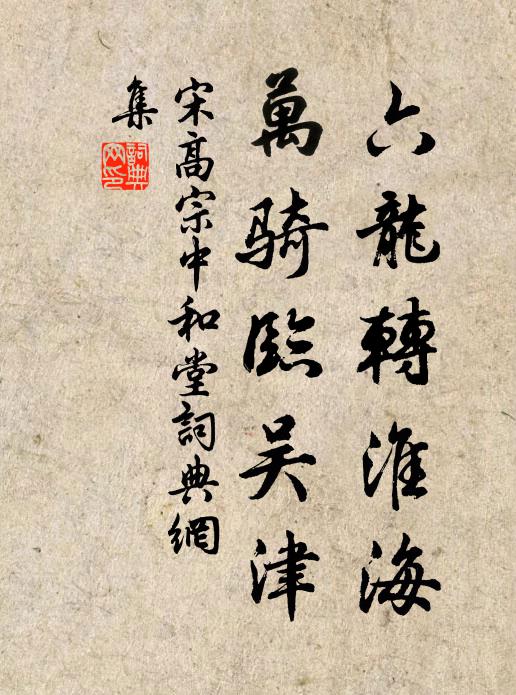 六龍轉淮海
萬騎臨吴津
宋高宗中和堂詞典網
集
詞典網印